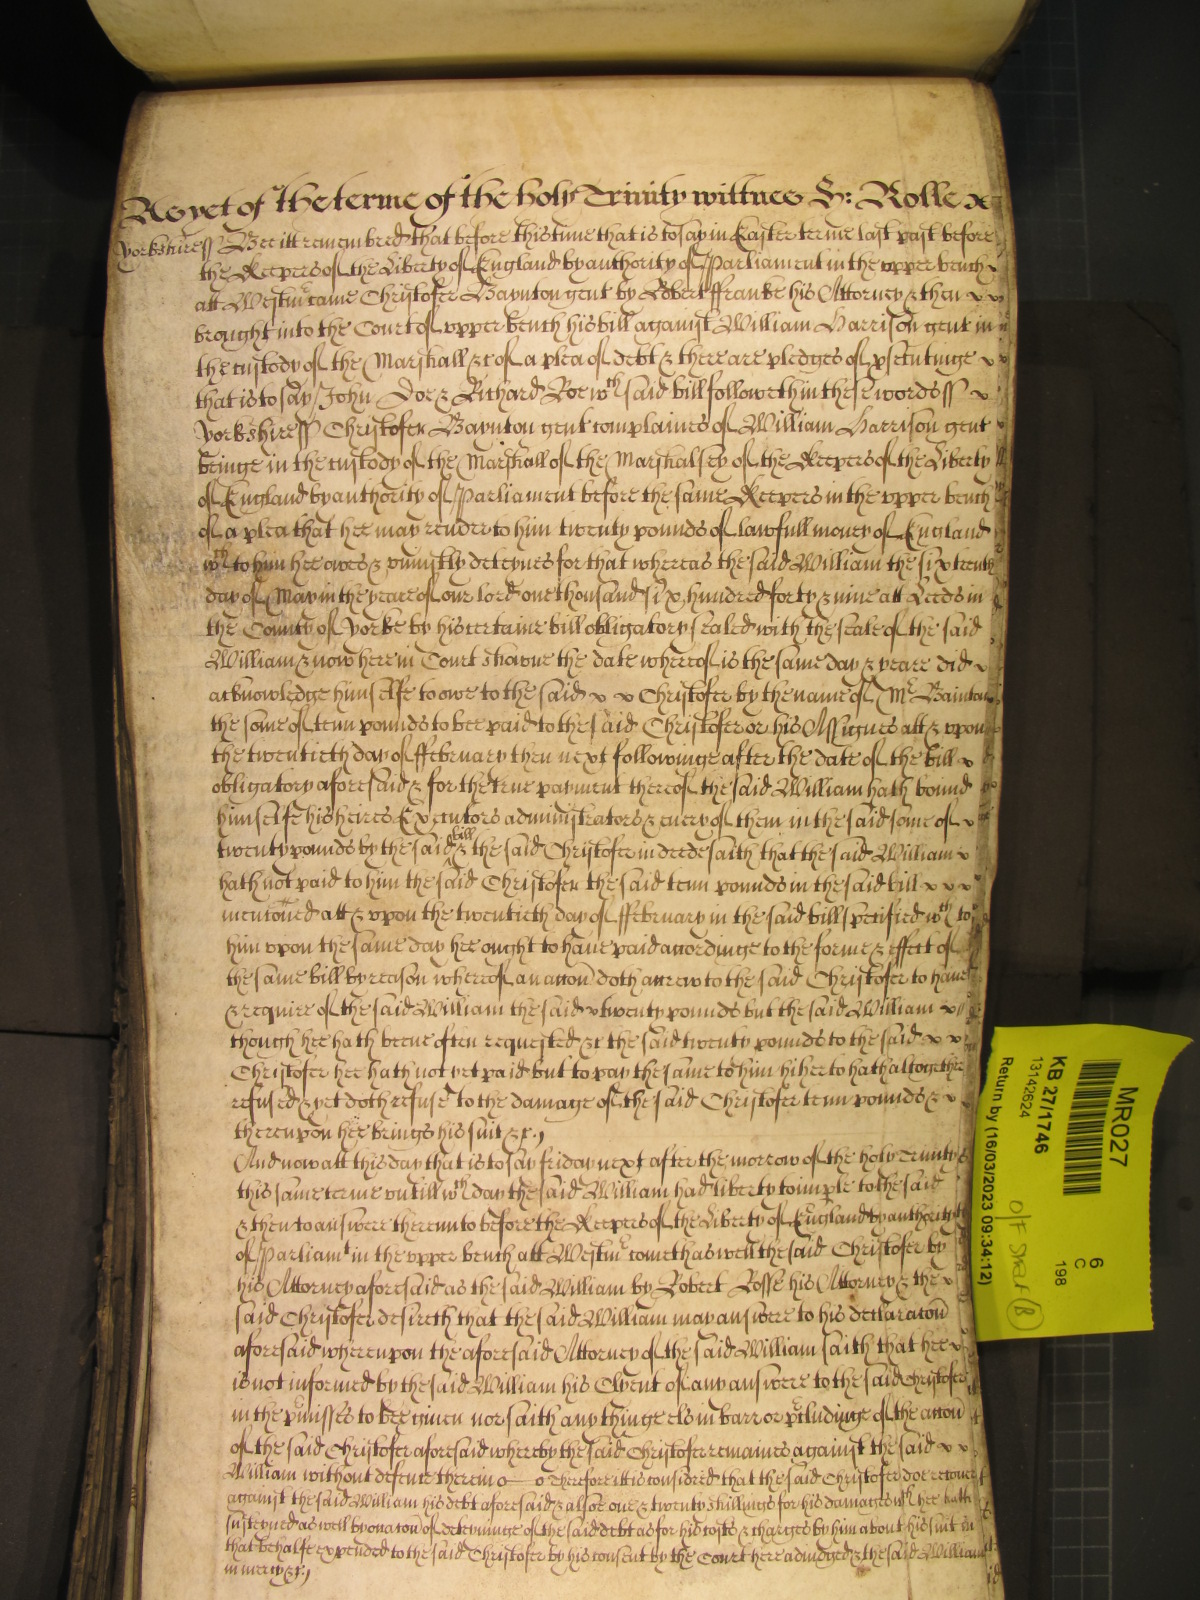 As yet of the terme of the holy Trinity wittnes H: Rolle x
Yorkshire ss Bee itt remembred that before this time that is to say in Easter terme last past before
the Keepers of the Liberty of England by authority of Parliament in the upper bench x
att Westmr came Christofer Baynton gent by Robert ffranke his Attorney & then x x
brought into the Court of upper bench his bill against William Harrison gent in
the custody of the Marshall &c of a plea of debt & there are pledges of psecutinge x x
that is to say John Doe & Richard Roe wch said bill followeth in these words ss x
Yorkshire ss Christofer Baynton gent complaines of William Harrison gent
beinge in the custody of the Marshall of the Marshalsey of the Keepers of the Liberty
of England by authority of Parliament before the same Keepers in the upper bench
of a plea that hee may render to him twenty pounds of lawfull money of England
wch to him hee owes & uniustly deteynes for that whereas the said William the sixteenth
day of May in the yeare of our lord one thousand six hundred forty & nine att Leeds in
the County of Yorke by his certaine bill obligatory sealed with the seale of the said
William & now here in Court showne the date whereof is the same day & yeare did x
acknowledge himselfe to owe to the said x x Christofer by the name of Mr Bainton
the some of tenn pounds to bee paid to the said Christofer or his Assignes att & upon
the twentieth day of ffebruary then next followinge after the date of the bill x
obligatory aforesaid & for the true payment thereof the said William hath bound
himselfe his heires Executors administrators & every of them in the said some of x
twenty pounds by the said bill & the said Christofer in deede saith that the said William x
hath not paid to him the said Christofer the said tenn pounds in the said bill x x x
mentoned att & upon the twentieth day of ffebruary in the said bill specified wch to
him upon the same day hee ought to have paid accordinge to the forme & effect of
the same bill by reason whereof an accon doth accrew to the said Christofer to have
& require of the said William the said x twenty pounds but the said William x
though hee hath beene often requested &c the said twenty pounds to the said x x
Christofer hee hath not yet paid but to pay the same to him hiherto hath altogether
refused & yet doth refuse to the damage of the said Christofer tenn pounds & x
thereupon hee brings his suit &c.
And now att this day that is to say friday next after the morrow of the holy Trinity
this same terme untill wch day the said William had liberty to imple to the said
& then to answere thereunto before the Keepers of the Liberty of England by authority
of Parliamt in the upper bench att Westmr cometh as well the said Christofer by
his Attorney aforesaid as the said William by Robert Rosse his Attorney & the x
said Christofer desireth that the said William may answere to his declaracon
aforesaid whereupon the aforesaid Attorney of the said William saith that hee x
is not informed by the said William his Clyent of any answere to the said Christofer
in the pmisses to bee given nor saith any thinge els in barr or pcludinge of the accon
of the said Christofer aforesaid whereby the said Christofer remaines against the said x x
William without defence therein o — o Therefore itt is considred that the said Christofer doe recover
against the said William his debt aforesaid & alsoe one & twenty shillings for his damages wch hee hath
susteyned as well by occacon of deteyninge of the said debt as for his costs & charges by him about his suit in
that behalfe expended to the said Christofer by his consent by the Court here adiudged & the said William
in mercy &c.
MR027
6
C
198
KB 27/1746
13142624
Return by (16/03/2023 09:34:12)